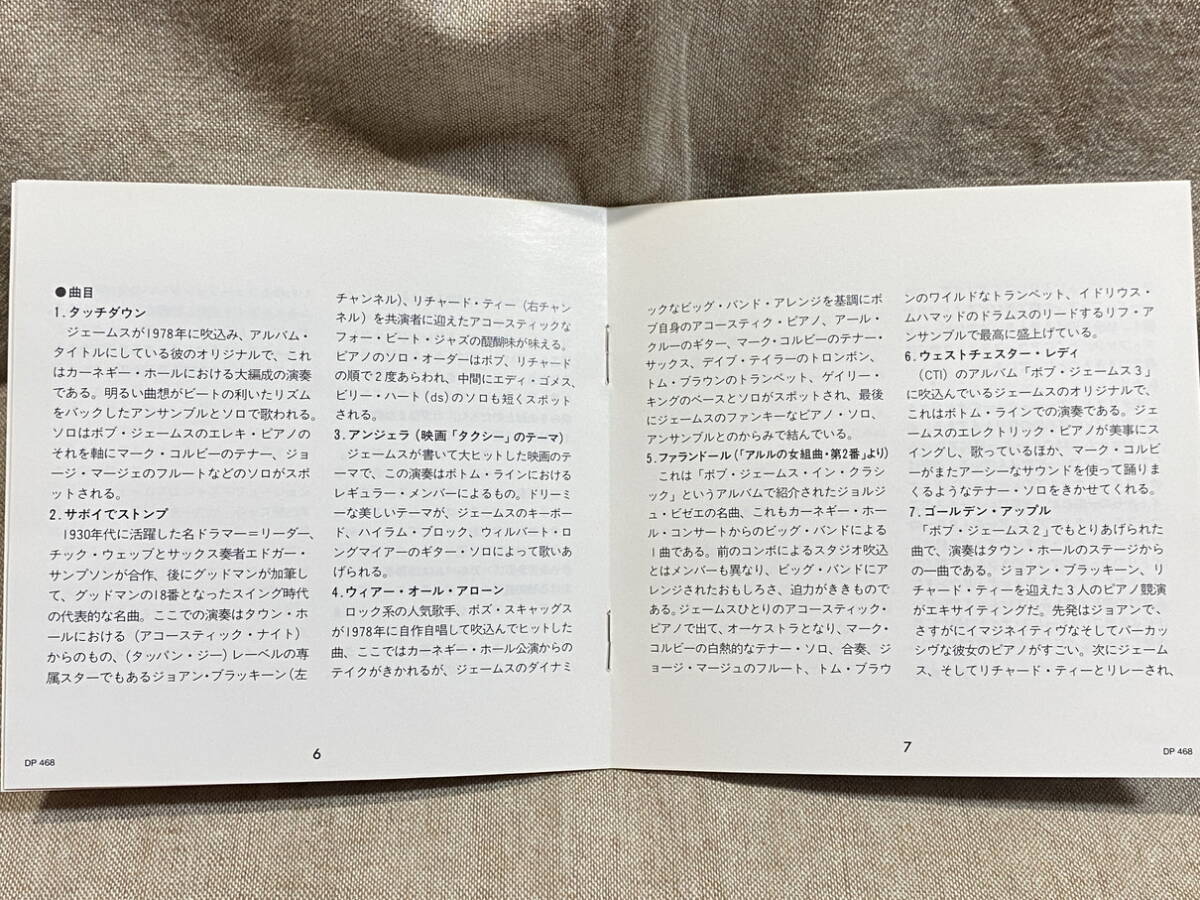 ●曲目
1.タッチダウン
ジェームスが1978年に吹込み、アルバム・
タイトルにしている彼のオリジナルで、これ
はカーネギー・ホールにおける大編成の演奏
である。明るい曲想がビートの利いたリズム
をバックしたアンサンブルとソロで歌われる。
ソロはボブ・ジェームスのエレキ・ピアノの
それを軸にマーク・コルビーのテナー、ジョ
ージ・マージェのフルートなどのソロがスポ
ットされる。
2.サボイでストンプ
1930年代に活躍した名ドラマー=リーダー、
チック・ウェッブとサックス奏者エドガー・
サンプソンが合作、後にグッドマンが加筆し
て、グッドマンの18番となったスイング時代
の代表的な名曲。ここでの演奏はタウン・ホ
ールにおける(アコースティック・ナイト)
からのもの、(タッパン・ジー)レーベルの専
属スターでもあるジョアン・ブラッキーン(左
チャンネル)、リチャード・ティー(右チャン
ネル)を共演者に迎えたアコースティックな
フォー・ビート・ジャズの醍醐味が味える。
ピアノのソロ・オーダーはボブ、リチャード
の順で2度あらわれ、中間にエディ・ゴメス、
ビリー・ハート(ds)のソロも短くスポット
される。
3.アンジェラ(映画「タクシー」のテーマ)
ジェームスが書いて大ヒットした映画のテ
ーマで、この演奏はボトム・ラインにおける
レギュラー・メンバーによるもの。ドリーミ
ーな美しいテーマが、ジェームスのキーボー
ド、ハイラム・ブロック、ウィルバート・ロ
ングマイアーのギター・ソロによって歌いあ
げられる。
4.ウィアー・オール・アローン
ロック系の人気歌手、ボズ・スキャッグス
が1978年に自作自唱して吹込んでヒットした
曲、ここではカーネギー・ホール公演からの
テイクがきかれるが、ジェームスのダイナミ
DP 468
6
ックなビッグ・バンド・アレンジを基調にボ
ブ自身のアコースティク・ピアノ、アール・
クルーのギター、マーク・コルビーのテナー・
サックス、デイブ・テイラーのトロンボン、
トム・ブラウンのトランペット、ゲイリー・
キングのベースとソロがスポットされ、最後
にジェームスのファンキーなピアノ・ソロ、
アンサンブルとのからみで結んでいる。
5.ファランドール(「アルルの女組曲・第2番」より)
これは「ボブ・ジェームス・イン・クラシ
ック」というアルバムで紹介されたジョルジ
ュ・ビゼエの名曲、これもカーネギー・ホー
ル・コンサートからのビッグ・バンドによる
1曲である。前のコンボによるスタジオ吹込
とはメンバーも異なり、ビッグ・バンドにア
レンジされたおもしろさ、迫力がききもので
ある。ジェームスひとりのアコースティック・
ピアノで出て、オーケストラとなり、マーク・
コルビーの白熱的なテナー・ソロ、合奏、ジ
ョージ・マージュのフルート、トム・ブラウ
ンのワイルドなトランペット、イドリウス・
ムハマッドのドラムスのリードするリフ・ア
ンサンブルで最高に盛上げている。
6.ウェストチェスター・レディ
(CTI)のアルバム「ボブ・ジェームス3」
に吹込んでいるジェームスのオリジナルで、
これはボトム・ラインでの演奏である。ジェ
ームスのエレクトリック・ピアノが美事にス
イングし、歌っているほか、マーク・コルビ
ーがまたアーシーなサウンドを使って踊りま
くるようなテナー・ソロをきかせてくれる。
7.ゴールデン・アップル
「ボブ・ジェームス2」でもとりあげられた
曲で、演奏はタウン・ホールのステージから
の一曲である。ジョアン・ブラッキーン、リ
チャード・ティーを迎えた3人のピアノ競演
がエキサイティングだ。先発はジョアンで、
さすがにイマジネイティヴなそしてパーカッ
シヴな彼女のピアノがすごい。次にジェーム
ス、そしてリチャード・ティーとリレーされ、
7
DP 468